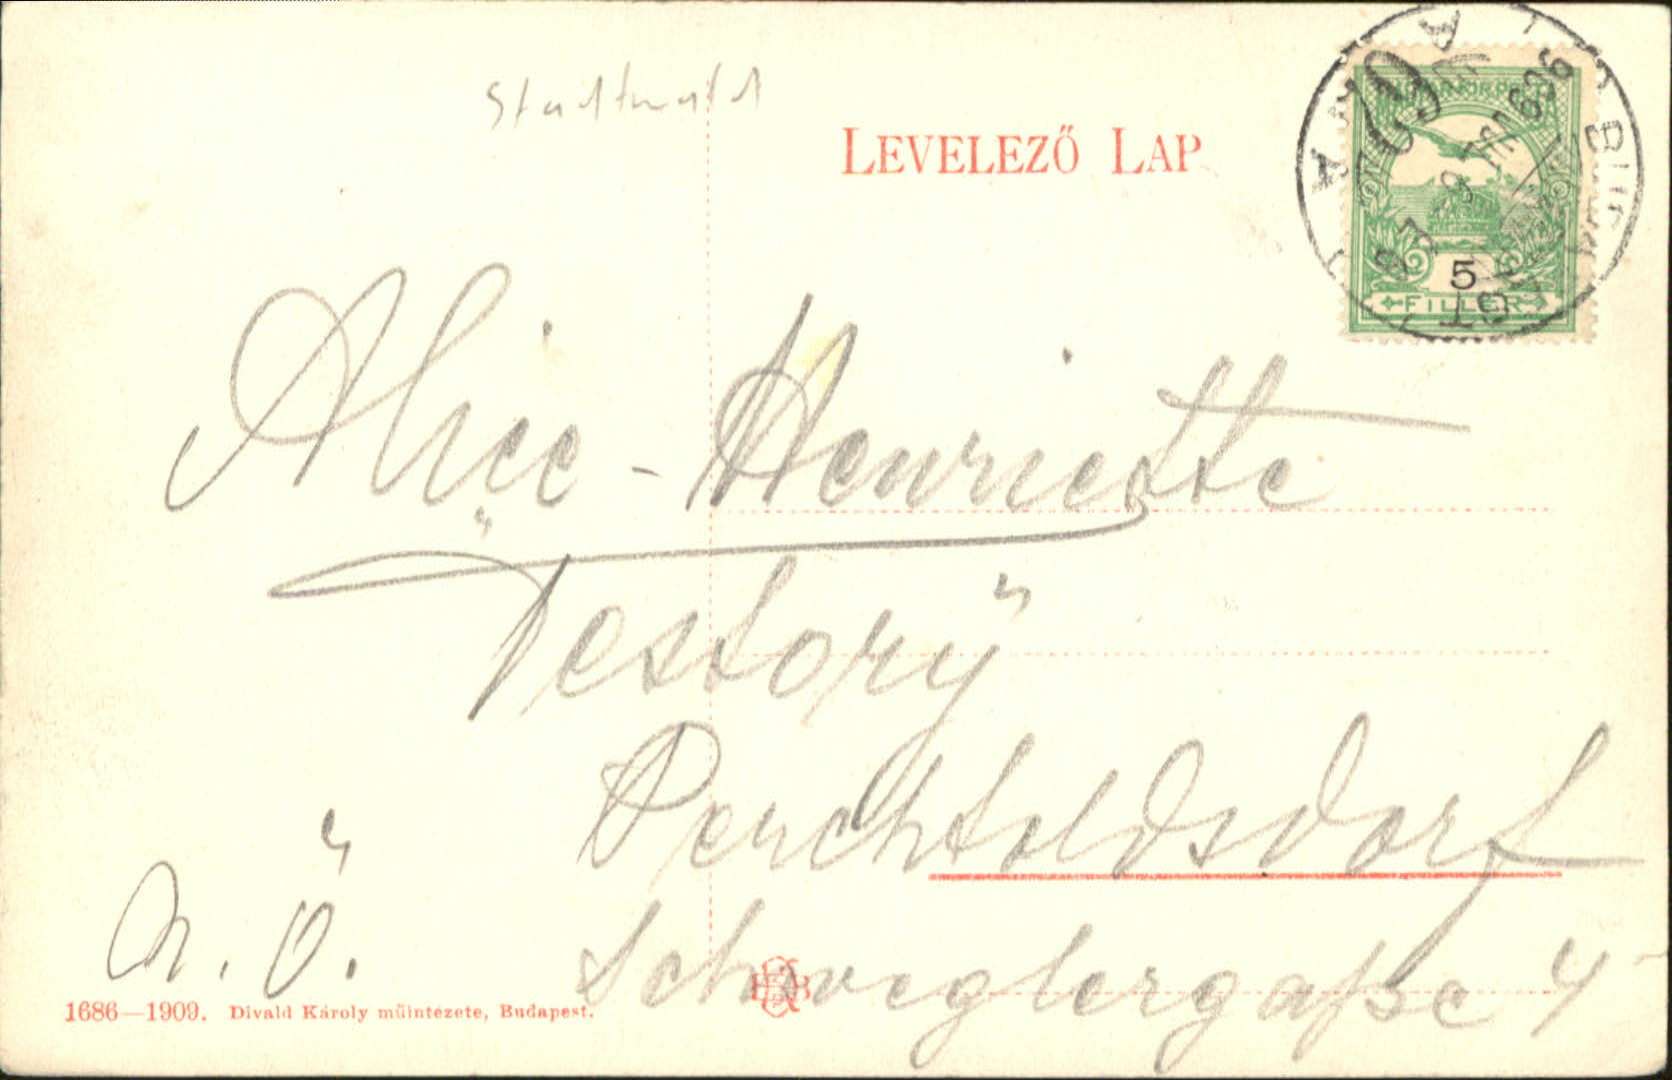 Stadtwald
LEVELEZŐ LAP
MAGYAR KIR. POSTA
5
FILLER
Alice - Henriette
Testory
Perchtoldsdorf
N. Ö.
Schweglergaße 4
1686—1909. Divald Károly műintézete, Budapest.